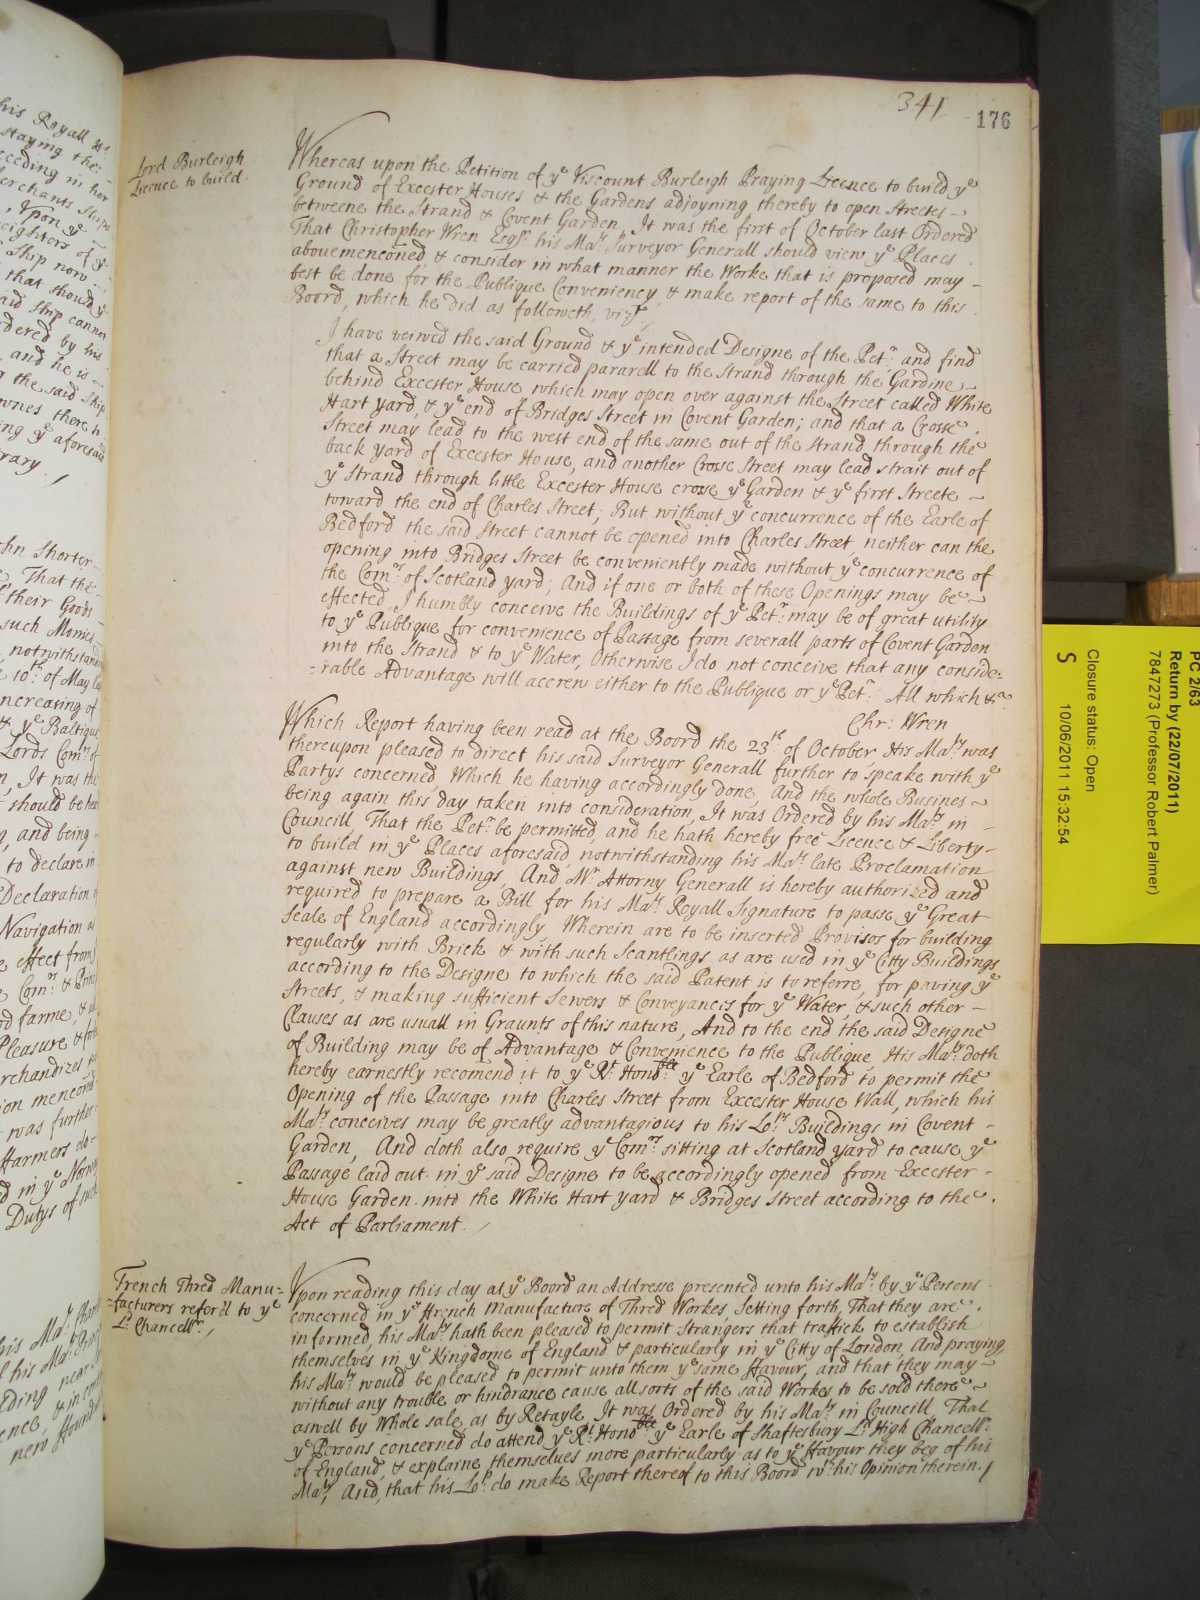 341
176
Lord Burleigh
Licence to build.
Whereas upon the Petition of ye Viscount Burleigh Praying Licence to build ye
Ground of Excester Houses & the Gardens adjoyning thereby to open Streetes
betweene the Strand & Covent Garden, It was the first of October last Ordered
That Christopher Wren Esqr. his Maty. Surveyor Generall should view ye Places
abovemenconed & consider in what manner the Worke that is proposed may
best be done for the Publique Conveniency, & make report of the same to this
Board, which he did as followeth, vizt.
I have veiwed the said Ground & ye intended Designe of the Petr. and find
that a Street may be carried pararell to the Strand through the Gardine
behind Excester House which may open over against the Street called White
Hart yard, & ye end of Bridges Street in Covent Garden; and that a Crosse
Street may lead to the west end of the same out of the Strand through the
back yard of Excester House, and another Crosse Street may lead strait out of
ye Strand through little Excester House crosse ye Garden & ye first Streete
toward the end of Charles Street; But without ye concurrence of the Earle of
Bedford the said Street cannot be opened into Charles Street, neither can the
opening into Bridges Street be conveniently made without ye concurrence of
the Comrs. of Scotland yard; And if one or both of these Openings may be
effected, I humbly conceive the Buildings of ye Petr. may be of great utility
to ye Publique for convenience of Passage from severall parts of Covent Garden
into the Strand & to ye Water, Otherwise I do not conceive that any conside=
=rable Advantage will accrew either to the Publique or ye Petr. All which &ca
Chr: Wren
Which Report having been read at the Board the 23th of October His Maty. was
thereupon pleased to direct his said Surveyor Generall further to speake with ye
Partys concerned, Which he having accordingly done And the whole Busines
being again this day taken into consideration, It was Ordered by his Maty. in
Councill That the Petr. be permitted, and he hath hereby free Licence & Liberty
to build in ye Places aforesaid, notwithstanding his Maty. late Proclamation
against new Buildings, And Mr. Attorny Generall is hereby authorized and
required to prepare a Bill for his Maty. Royall Signature to passe ye Great
Seale of England accordingly, Wherein are to be inserted Provisos for building
regularly with Brick & with such Scantlings as are used in ye Citty Buildings
according to the Designe to which the said Patent is to referre, for paving ye
Streets, & making sufficient Sewers & Conveyances for ye Water, & such other
Clauses as are usuall in Graunts of this nature, And to the end the said Designe
of Building may be of Advantage & Convenience to the Publique His Maty. doth
hereby earnestly recomend it to ye Rt. Honoble. ye Earle of Bedford to permit the
Opening of the Passage into Charles Street from Excester House Wall, which his
Maty. conceives may be greatly advantagious to his Lops. Buildings in Covent
Garden, And doth also require ye Comrs. sitting at Scotland yard to cause ye
Passage laid out in ye said Designe to be accordingly opened from Excester
House Garden into the White Hart yard & Bridges Street according to the
Act of Parliament.
French Thred Manu=
=facturers refer'd to ye
Ld. Chancellr.
Upon reading this day at ye Board an Addresse presented unto his Maty. by ye Persons
concerned in ye French Manufacture of Thred Workes Setting forth, That they are
informed, his Maty. hath been pleased to permit Strangers that traffick to establish
themselves in ye Kingdome of England & particularly in ye Citty of London, And praying
his Maty. would be pleased to permit unto them ye same favour, and that they may
without any trouble or hindrance cause all sorts of the said Workes to be sold there
aswell by Whole sale, as by Retayle, It was Ordered by his Maty. in Councill, That
ye Persons concerned do attend ye Rt. Honoble. ye Earle of Shaftesbury Ld. High Chancellr.
of England, & explaine themselves more particularly as to ye favour they beg of his
Maty, And, that his Lop. do make Report thereof to this Board wth his Opinion therein.
PC 2/63
Return by (22/07/2011)
7847273 (Professor Robert Palmer)
Closure status: Open
S 10/06/2011 15:32:54